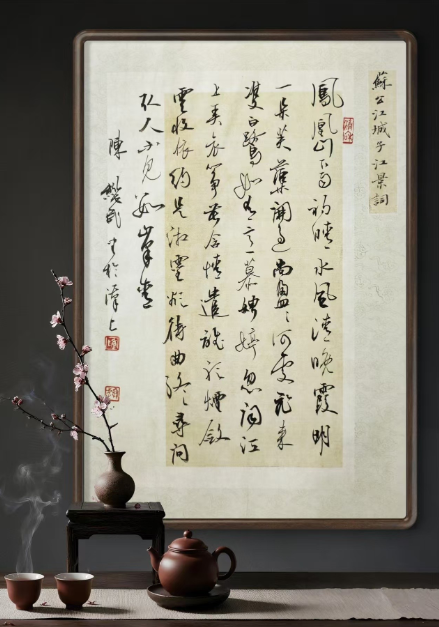 蘇公江城子江景詞
鳳凰山下雨初晴水風清晚霞明
一朵芙蕖開過尚盈〻何處飛來
雙白鷺如有意慕娉婷忽聞江
上弄哀箏苦含情遣誰聽煙斂
雲收依約是湘靈欲待曲終尋問
取人不見數峰青
陳 民書於漢上